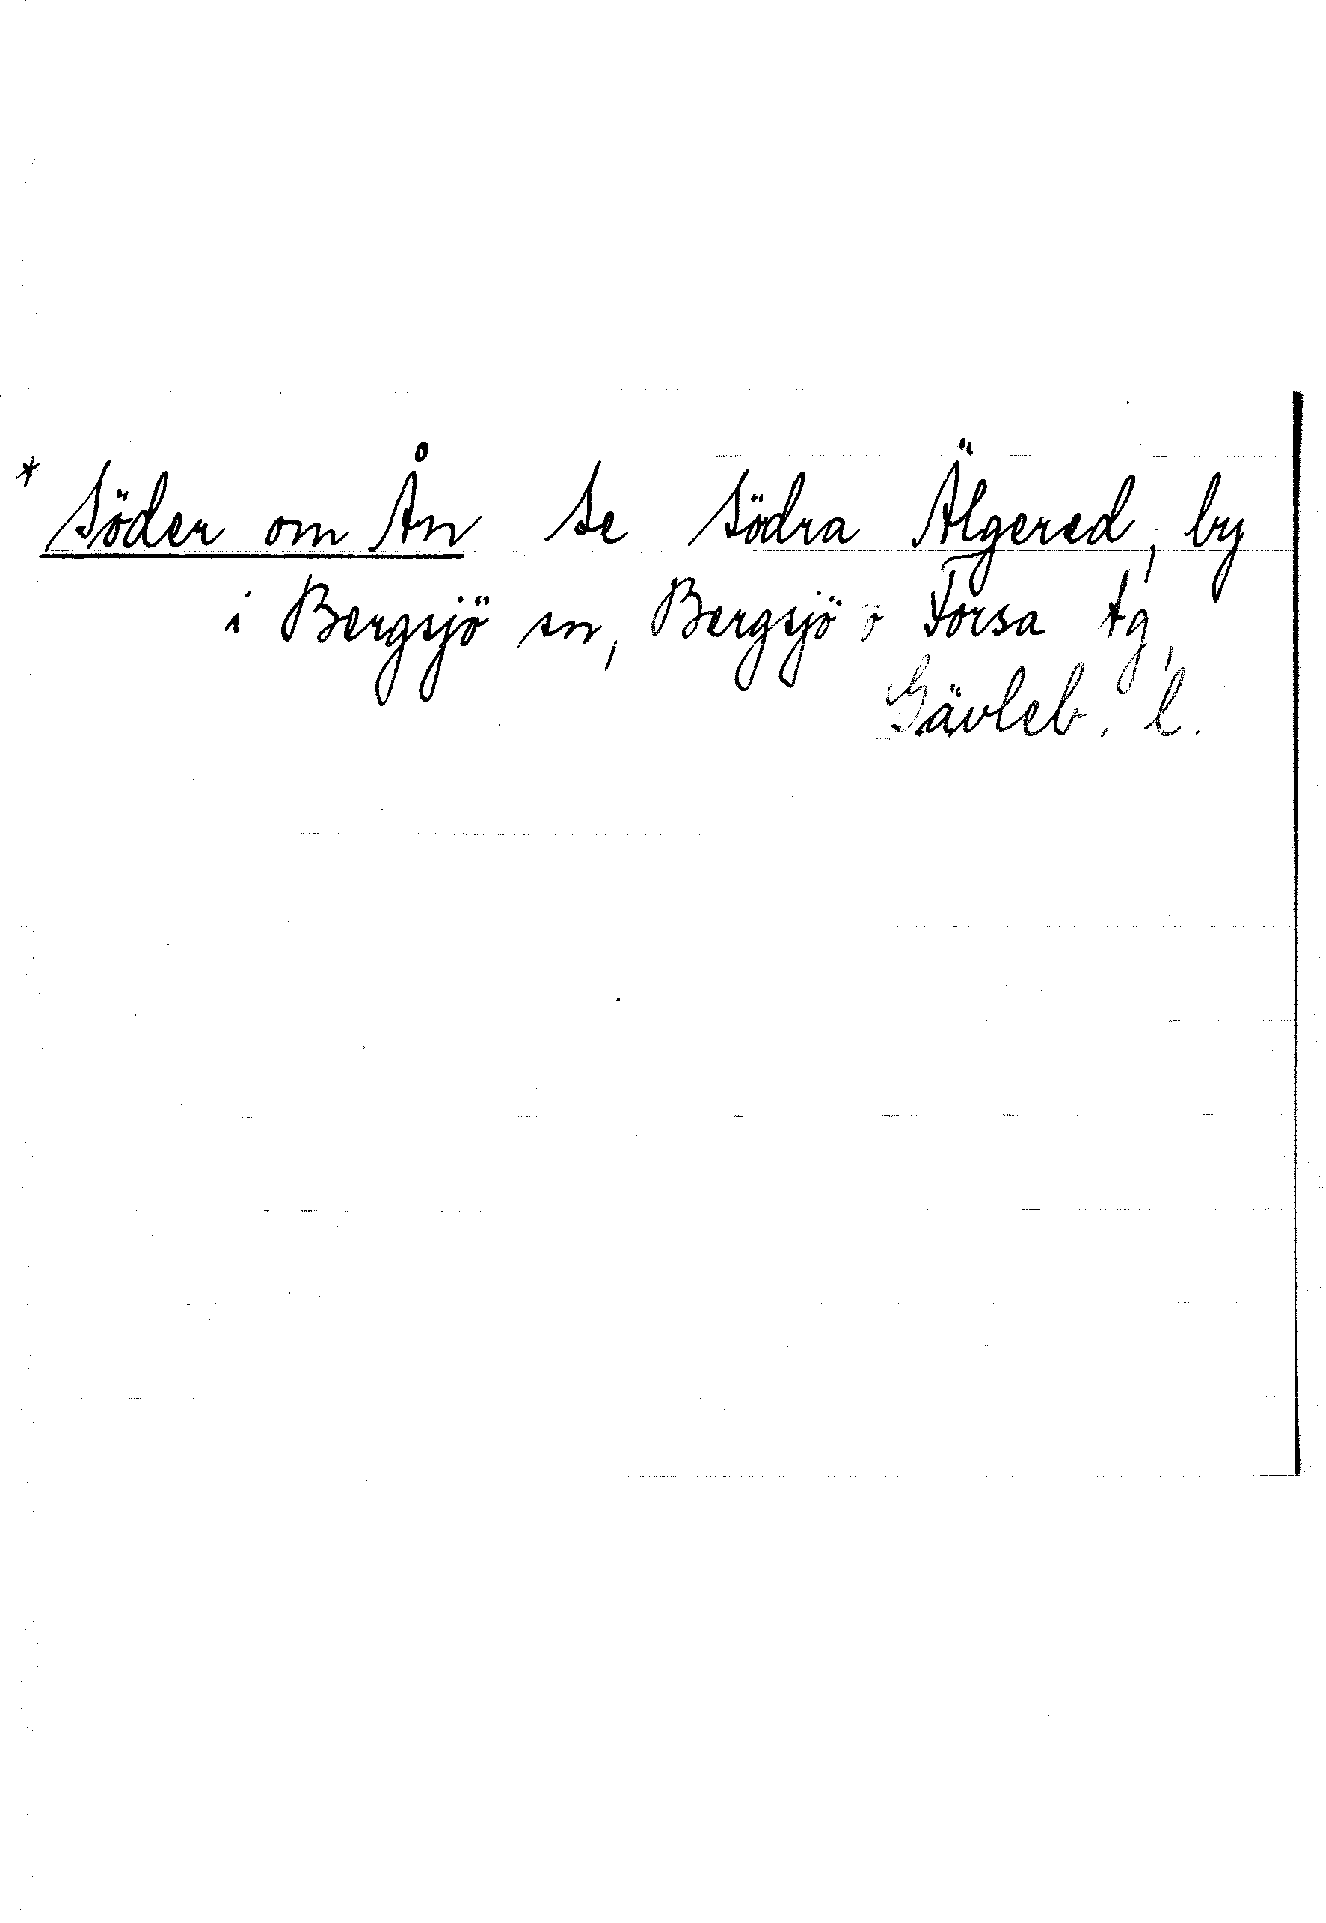 * Söder om Ån se Södra Älgered, by
i Bergsjö sn, Bergsjö o Forsa tg,
Gävleb. l.